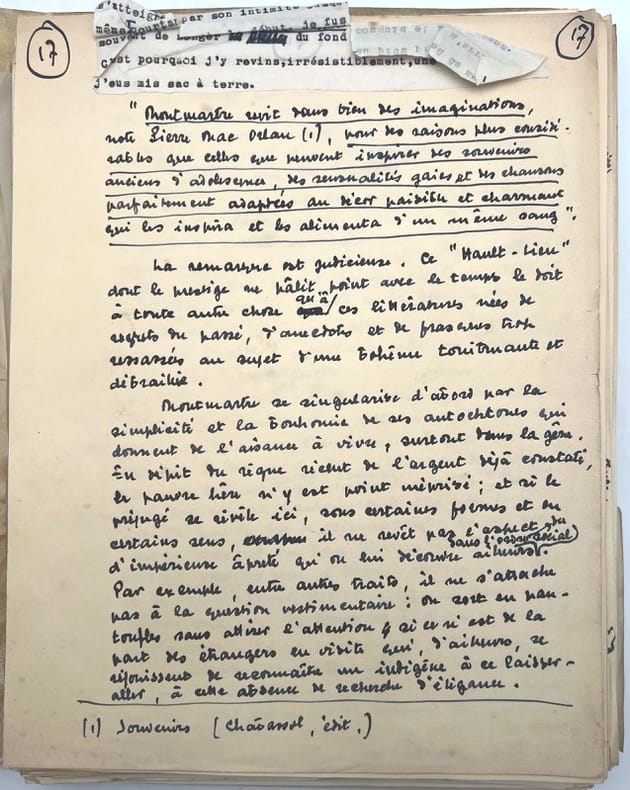 17
17
s'atteign
par son intimité
même
pourtant
début, je fus
souvent de
du fond
c'est pourquoi j'y revins,irrésistiblement,une
j'eus mis sac à terre.
" Montmartre vit dans bien des imaginations,
note Pierre Mac Orlan (1), pour des raisons plus considé-
rables que celles que peuvent inspirer des souvenirs
anciens d'adolescence, des sensualités gaies et des chansons
parfaitement adaptées au décor paisible et charmant
qui les inspira et les alimenta d'un même sang ".
La remarque est judicieuse. Ce "Hault-Lieu"
dont le prestige ne pâlit point avec le temps le doit
à toute autre chose qu'à ces littératures nées de
regrets du passé, d'anecdotes et de fresques trop
ressassées au sujet d'une bohème tonitruante et
débraillée.
Montmartre se singularise d'abord par la
simplicité et la bonhomie de ses autochtones qui
donnent de l'aisance à vivre, surtout dans la gêne.
En dépit du règne récent de l'argent déjà constaté,
le pauvre hère n'y est point méprisé ; et si le
préjugé se révèle ici, sous certaines formes et en
certains sens, il ne revêt pas l'aspect
dans l'ordre social
d'impérieuse âpreté qu'on lui découvre ailleurs.
Par exemple, entre autres traits, il ne s'attache
pas à la question vestimentaire : on sort en pan-
toufles sans attirer l'attention si ce n'est de la
part des étrangers en visite qui, d'ailleurs, se
réjouissent de reconnaître un indigène à ce laisser-
aller, à cette absence de recherche d'élégance.
(1) Souvenirs ( , édit.)